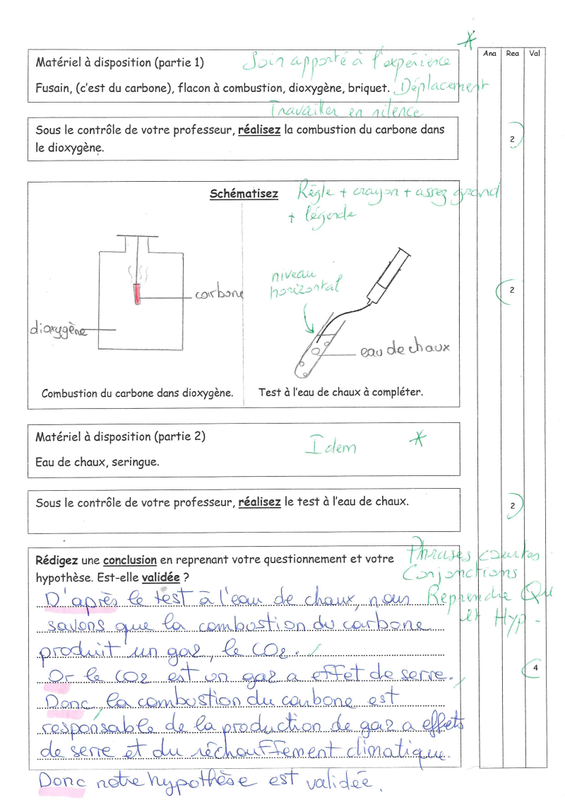 *
Ana Rea Val
Matériel à disposition (partie 1) Soin apporté à l'expérience
Fusain, (c'est du carbone), flacon à combustion, dioxygène, briquet. Déplacement
Travailler en silence
Sous le contrôle de votre professeur, réalisez la combustion du carbone dans
le dioxygène.
2
Schématisez Règle + crayon + assez grand
+ légende
niveau
horizontal
2
carbone
dioxygène
eau de chaux
Combustion du carbone dans dioxygène. Test à l'eau de chaux à compléter.
Matériel à disposition (partie 2)
Idem *
Eau de chaux, seringue.
Sous le contrôle de votre professeur, réalisez le test à l'eau de chaux.
2
Phrases courtes
Rédigez une conclusion en reprenant votre questionnement et votre
Conjonctions
hypothèse. Est-elle validée ?
Reprendre Qu
et Hyp.
D'après le test à l'eau de chaux, nous
savons que la combustion du carbone
produit un gaz, le CO2.
Or le CO2 est un gaz a effet de serre.
4
Donc, la combustion du carbone est
responsable de la production de gaz a effets
de serre et du réchouffement climatique.
Donc notre hypothèse est validée.